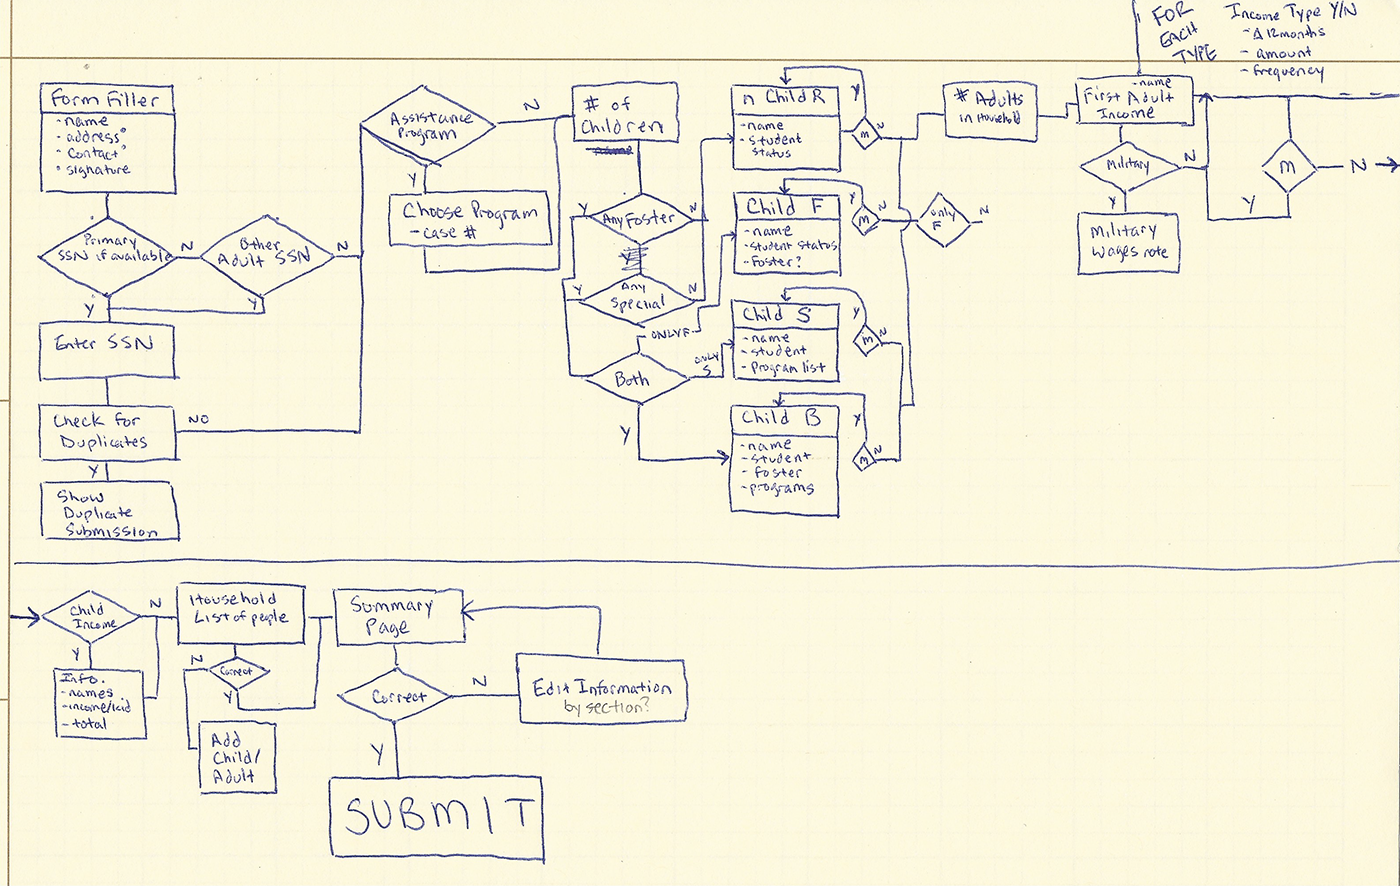 FOR
EACH
TYPE
Income Type Y/N
-Δ 12 months
- amount
- frequency
Form Filler
-name
-address°
-Contact°
° signature
Primary
SSN if available
N
Y
Other
Adult SSN
N
Y
Enter SSN
Check for
Duplicates
NO
Y
Show
Duplicate
Submission
Assistance
Program
N
Y
Choose Program
- case #
# of
Children
Any Foster
Y
N
Y
Any
Special
Y
N
ONLY F
Both
ONLY
S
Y
n Child R
-name
-student
status
Y
m
N
Child F
-name
-student status
-Foster?
Y
m
N
only
F
N
Child S
-name
-student
-program list
Y
m
N
Child B
-name
-student
-foster
-programs
Y
m
N
# Adults
in Household
-name
First Adult
Income
Military
N
Y
Military
Wages note
m
N
Y
Child
Income
N
Y
Info.
-names
-income/kid
-total
Household
List of people
N
Correct
Y
Add
Child/
Adult
Summary
Page
Correct
N
Y
Edit Information
by section?
SUBMIT